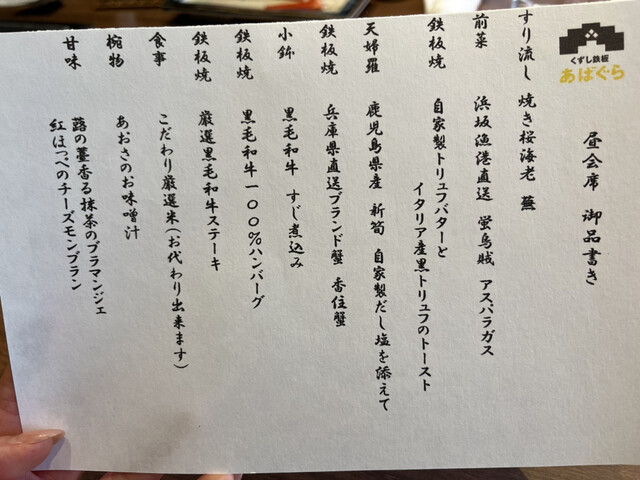 くずし鉄板
あばぐら
昼会席 御品書き
すり流し 焼き桜海老 蕪
前菜 浜坂漁港直送 蛍烏賊 アスパラガス
鉄板焼 自家製トリュフバターと
イタリア産黒トリュフのトースト
天婦羅 鹿児島県産 新筍 自家製だし塩を添えて
鉄板焼 兵庫県直送ブランド蟹 香住蟹
小鉢 黒毛和牛 すじ煮込み
鉄板焼 黒毛和牛一〇〇%ハンバーグ
鉄板焼 厳選黒毛和牛ステーキ
食事 こだわり厳選米(お代わり出来ます)
椀物 あおさのお味噌汁
甘味 蕗の薹香る抹茶のブラマンジェ
紅ほっぺのチーズモンブラン